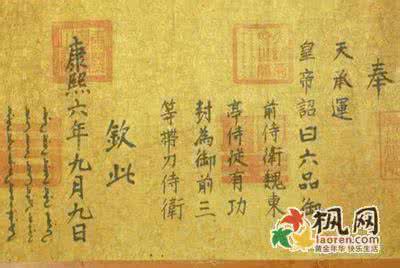 奉
天承運
皇帝詔曰六品御
前侍衛魏東
亭侍從有功
封為御前三
等帶刀侍衛
欽此
康熙六年九月九日
枫网
laoren.com
黄金年华 快乐生活